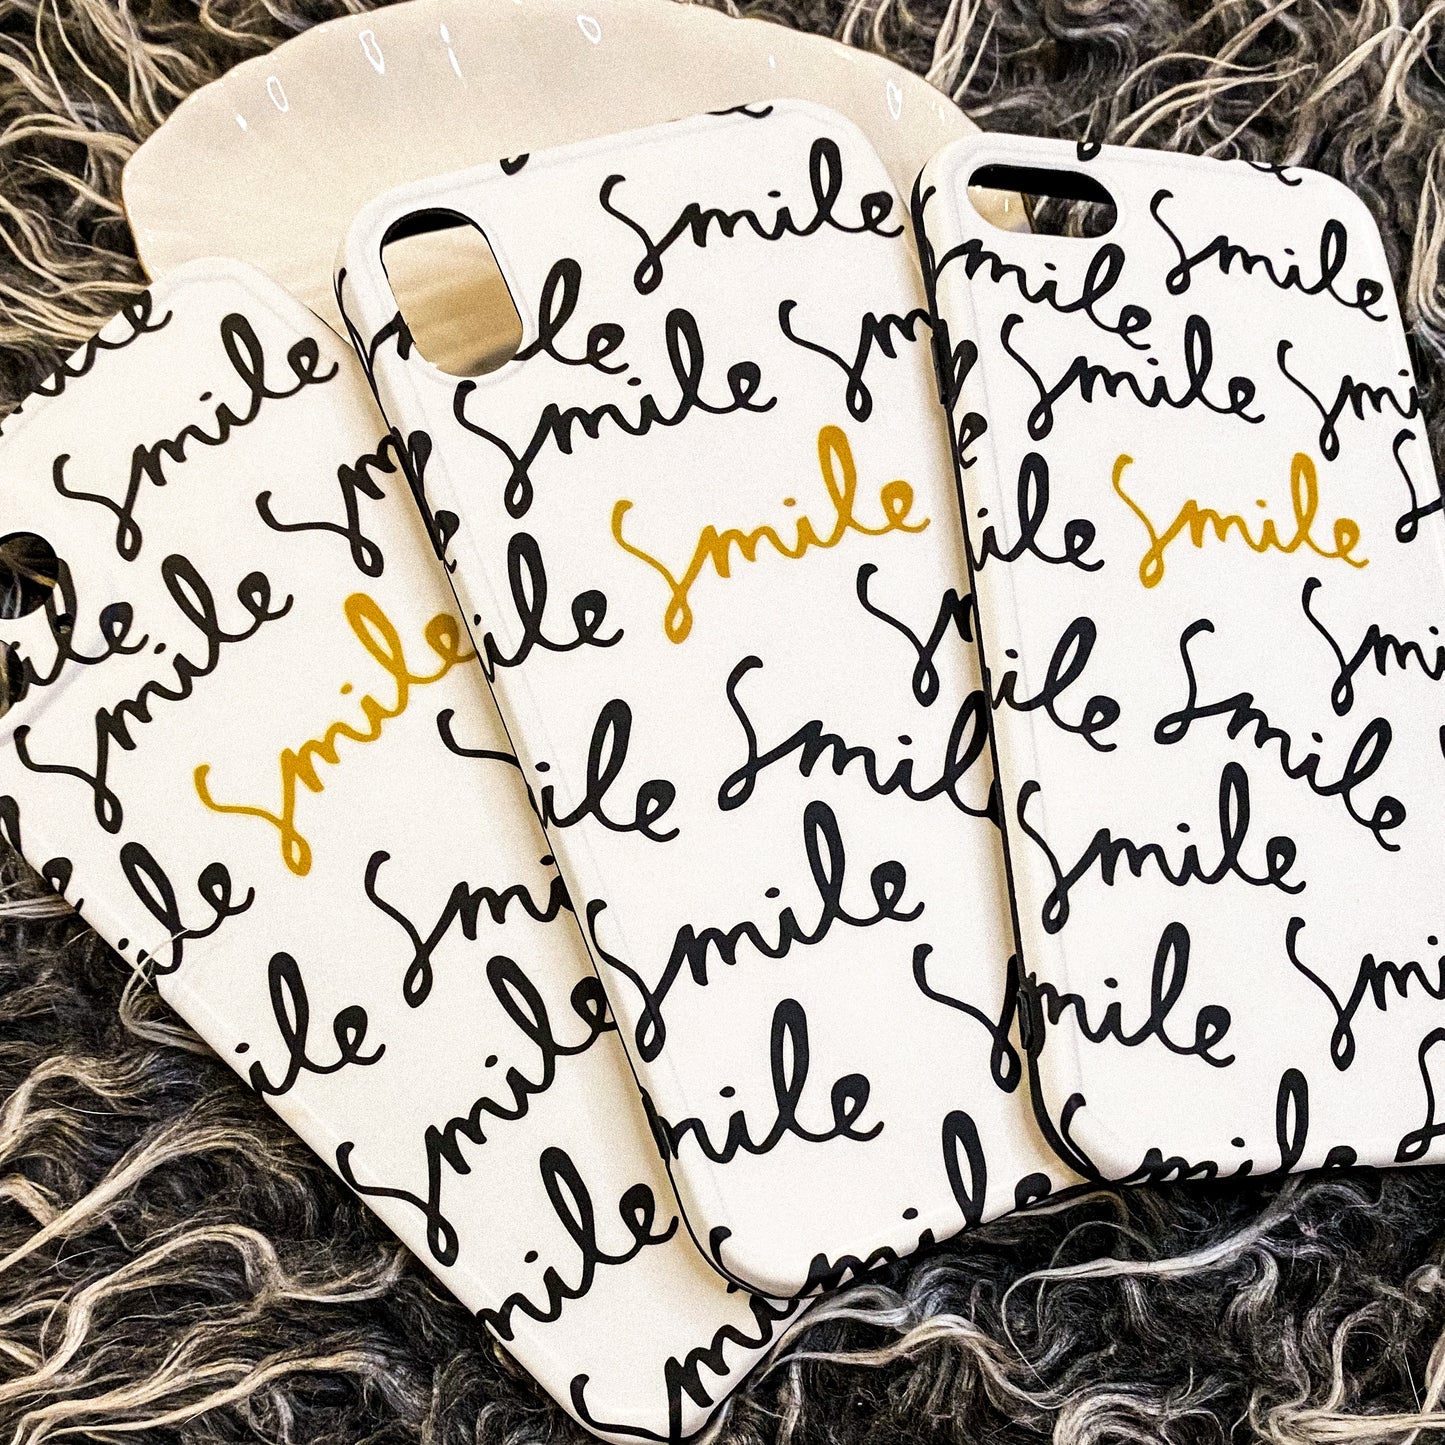 smile
smile
smile
smile
smile
smile
smile
smile
smile
smile
smile
smile
smile
smile
smile
smile
smile
smile
smile
smile